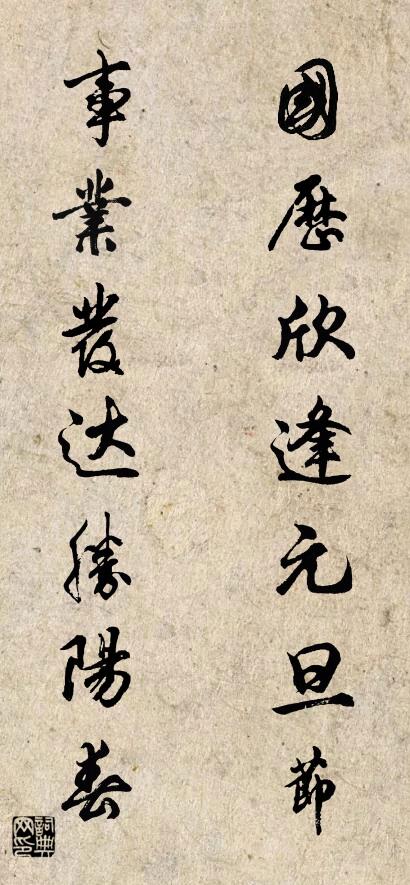 國歷欣逢元旦節
事業發达勝陽春
詞典网印